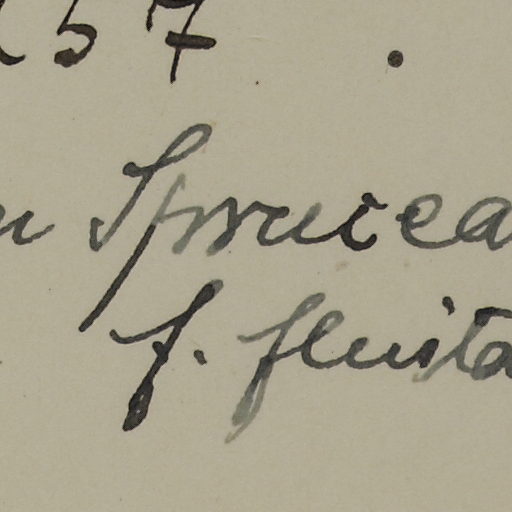 57 .
Sprucea
f. fluita